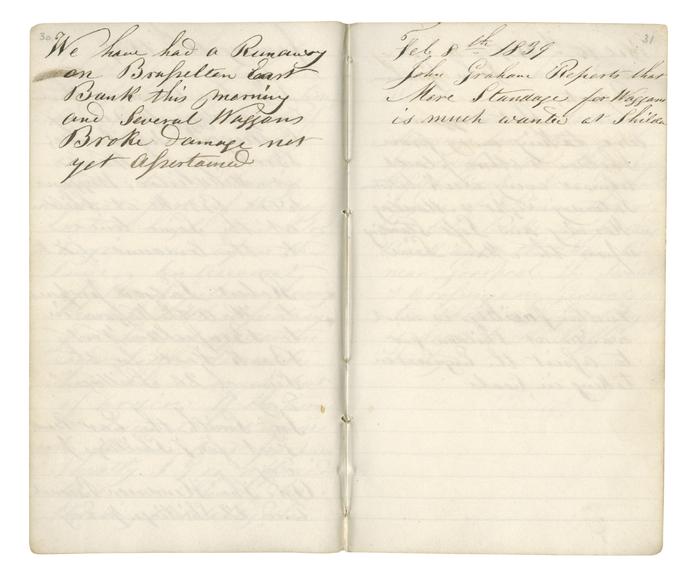 30
We have had a Runaway
on Brusselten East
Bank this morning
and Several Waggons
Broke Damage not
yet Assertained
31
Feb 8th 1839
John Graham Reports that
More Standage for Waggons
is much wanted at Shildn